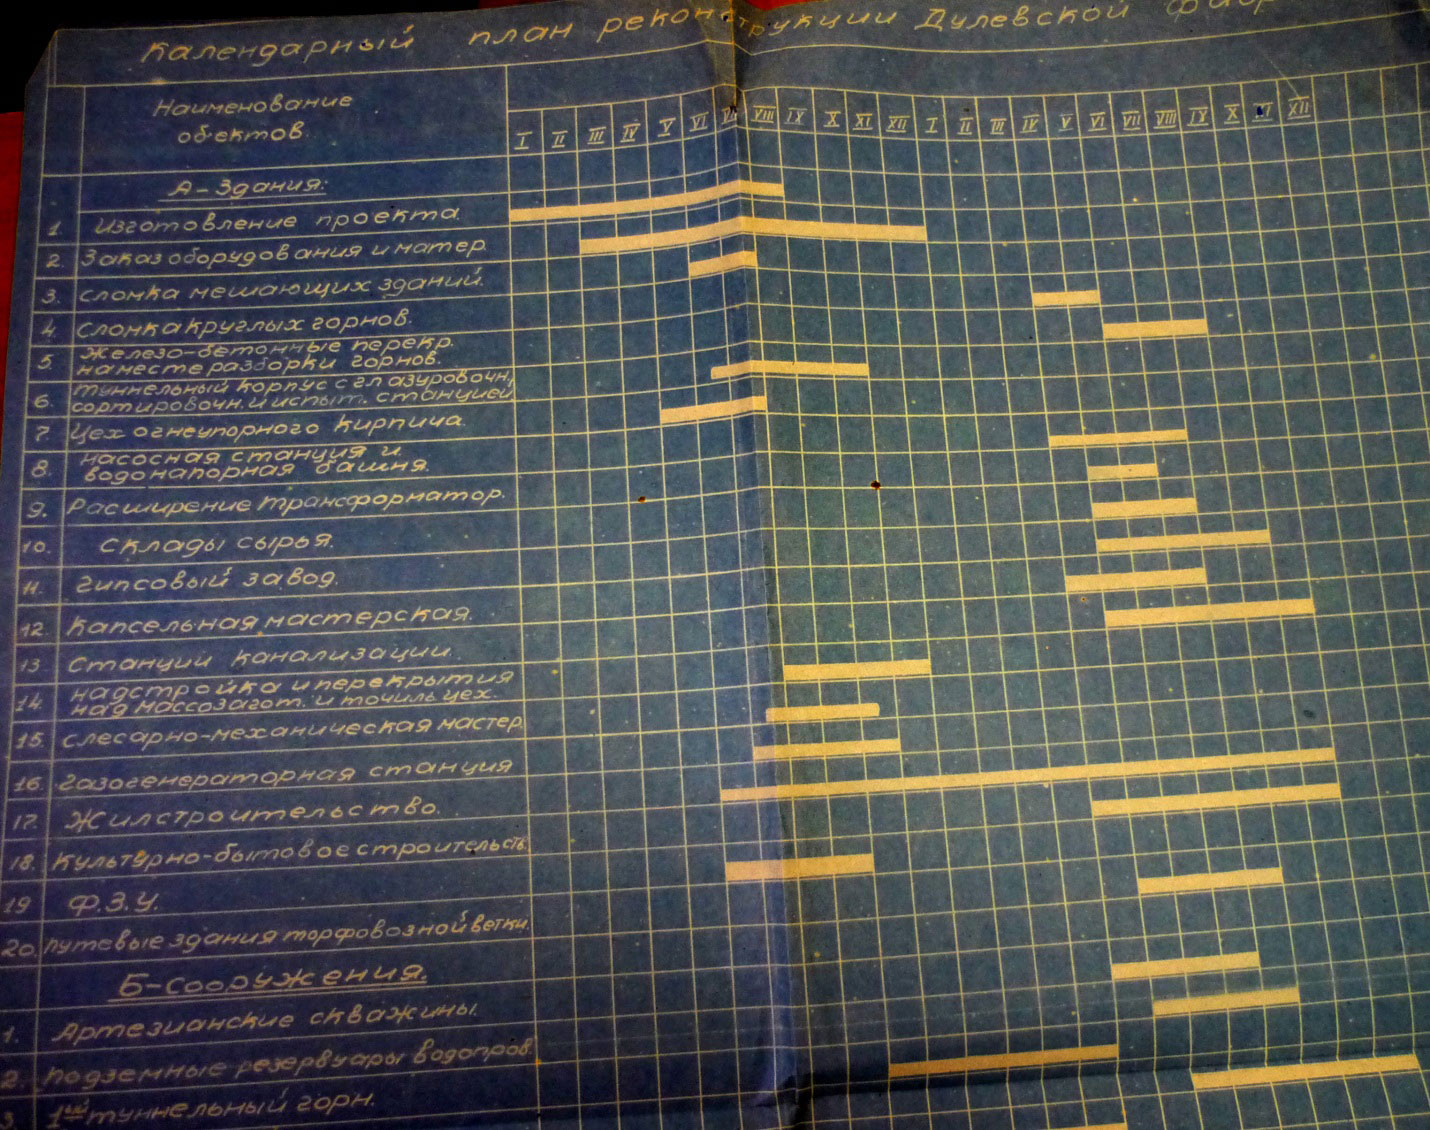 Календарный план реконструкции Дулевской
Наименование
объектов.
I II III IV V VI VII VIII IX X XI XII I II III IV V VI VII VIII IX X XI XII
А-Здания:
1. Изготовление проекта.
2. Заказ оборудования и матер.
3. Сломка мешающих зданий.
4. Сломка круглых горнов.
5. Железо-бетонные перекр.
на месте разборки горнов.
6. Туннельный корпус с глазуровочн,
сортировочн. и испыт. станцией
7. Цех огнеупорного кирпича.
8. Насосная станция и
водонапорная башня.
9. Расширение трансформатор.
10. Склады сырья.
11. Гипсовый завод.
12. Капсельная мастерская.
13. Станции канализации.
14. Надстройка и перекрытия
над массозагот. и точильн цех.
15. Слесарно-механическая мастер.
16. Газогенераторная станция
17. Жилстроительство.
18. Культурно-бытовое строительств.
19 Ф.З.У.
20. Путевые здания торфовозной ветки.
Б-Сооружения.
1. Артезианские скважины.
2. Подземные резервуары водопров.
3. 1ый туннельный горн.